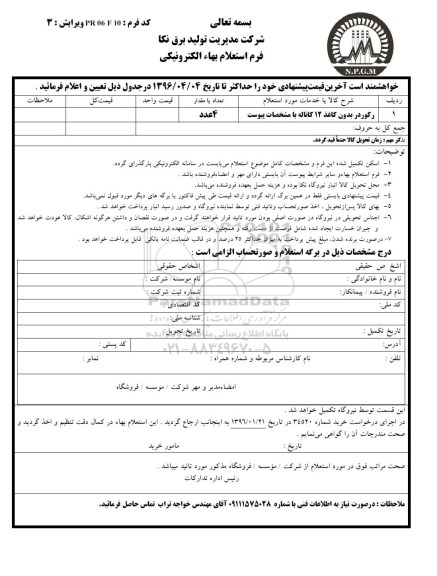 بسمه تعالی
کد فرم : PR 06 F 10 ویرایش : ۳
شرکت مدیریت تولید برق نکا
فرم استعلام بهاء الکترونیکی
N.P.G.M
خواهشمند است آخرین قیمت پیشنهادی خود را حداکثر تا تاریخ ۱۳۹۶/۰۴/۰۴ درجدول ذیل تعیین و اعلام فرمائید .
ردیف شرح کالا یا خدمات مورد استعلام تعداد یا مقدار قیمت واحد قیمت‌کل ملاحظات
۱ رکوردر بدون کاغذ ۱۲ کاناله با مشخصات پیوست ۴عدد
جمع کل به حروف:
تذکر مهم : زمان تحویل کالا حتماً قید گردد.
توضیحات:
۱- اسکن تکمیل شده این فرم و مشخصات کامل موضوع استعلام می‌بایست در سامانه الکترونیکی بارگذاری گردد.
۲- فرم استعلام بهاءو سایر شرایط پیوست آن بایستی دارای مهر و امضاءفروشنده باشد .
۳- محل تحویل کالا انبار نیروگاه نکا بوده و هزینه حمل بعهده فروشنده می‌باشد.
۴- قیمت پیشنهادی بایستی فقط در همین برگ ارائه گردد و ارائه قیمت طی پیش فاکتور یا برگه های دیگر مورد قبول نمی‌باشد.
۵- بهای کالا پس‌ازتحویل ، اخذ صورتحساب وتائید فنی توسط نماینده نیروگاه و صدور رسید انبار پرداخت خواهد شد .
۶- اجناس تحویلی در نیروگاه در صورت اصلی بودن مورد تائید قرار خواهند گرفت و در صورت نقصان و داشتن هرگونه اشکال، کالا عودت خواهد شد
و جبران خسارت ایجاد شده شامل فرصت از دست رفته و همچنین هزینه حمل بعهده فروشنده می‌باشد.
۷- درصورت برنده شدن، مبلغ پیش پرداخت به میزان حداکثر ۲۵ درصد و در قالب ضمانت نامه بانکی قابل پرداخت خواهد بود .
درج مشخصات ذیل در برگه استعلام و صورتحساب الزامی است :
اشخاص حقیقی اشخاص حقوقی
نام و نام خانوادگی : نام موسسه/ شرکت :
نام فروشنده / پیمانکار: شماره ثبت شرکت :
کد ملی: کد اقتصادی:
شناسه ملی:
تاریخ تکمیل : تاریخ تحویل:
آدرس: کد پستی :
تلفن : نام کارشناس مربوطه و شماره همراه : نمابر :
امضاءمدیر و مهر شرکت / موسسه / فروشگاه
این قسمت توسط نیروگاه تکمیل خواهد شد .
در اجرای درخواست خرید شماره ۳۴۵۲۰ در تاریخ ۱۳۹۶/۰۱/۲۱ به اینجانب ارجاع گردید . این استعلام بهاء در کمال دقت تنظیم و اخذ گردید و
صحت مندرجات آن را گواهی می‌نمایم .
تاریخ : مامور خرید
صحت مراتب فوق در مورد استعلام از شرکت / مؤسسه / فروشگاه مذکور مورد تائید میباشد .
رئیس اداره تدارکات
ملاحظات : درصورت نیاز به اطلاعات فنی با شماره ۰۹۱۱۱۵۷۵۰۲۸ آقای مهندس خواجه تراب تماس حاصل فرمائید.
ParsNamadData
پایگاه اطلاع رسانی مناقصات و مزایدات
۰۲۱-۸۸۳۴۹۶۷۰-۵